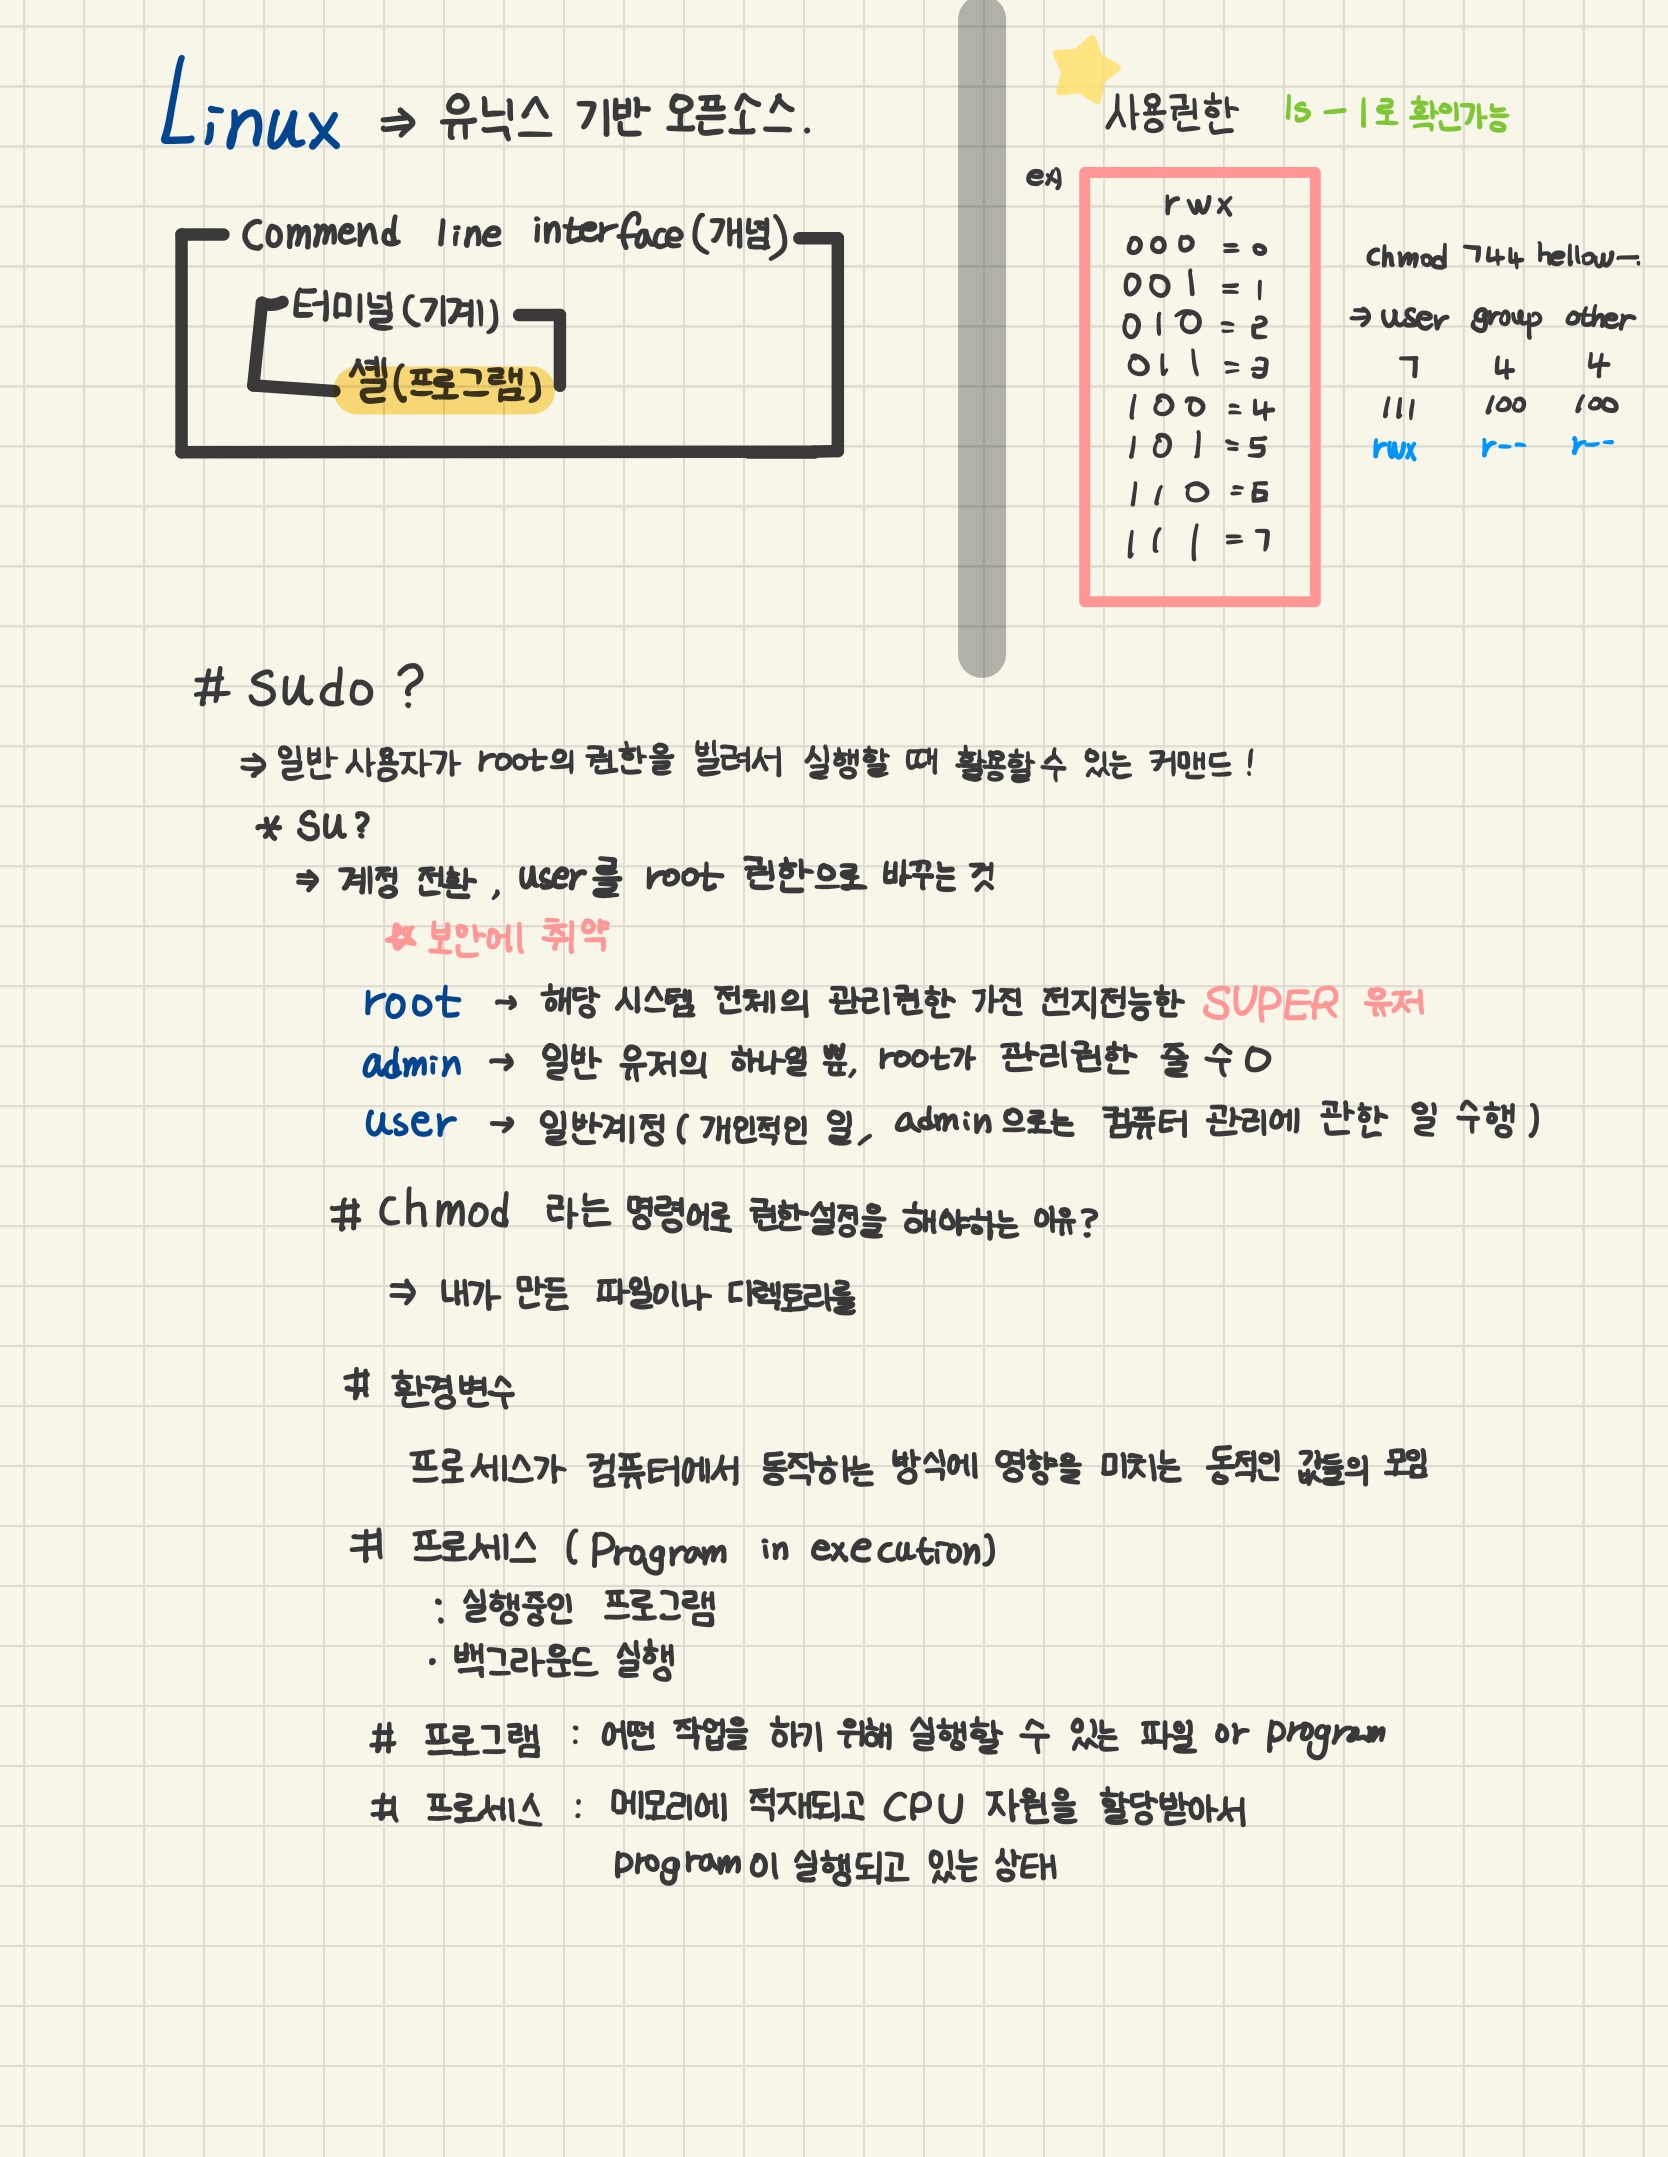 Linux ⇒ 유닉스 기반 오픈소스.
Commend line interface (개념)
터미널 (기계)
셸 (프로그램)
사용권한 ls - l 로 확인가능
ex)
rwx
000 = 0
001 = 1
010 = 2
011 = 3
100 = 4
101 = 5
110 = 6
111 = 7
chmod 744 hellow—.
⇒ user group other
7 4 4
111 100 100
rwx r-- r--
# sudo ?
⇒ 일반 사용자가 root의 권한을 빌려서 실행할 때 활용할 수 있는 커맨드 !
* su?
⇒ 계정 전환 , user를 root 권한으로 바꾸는 것
☆ 보안에 취약
root → 해당 시스템 전체의 관리권한 가진 전지전능한 SUPER 유저
admin → 일반 유저의 하나일 뿐, root가 관리권한 줄 수 O
user → 일반계정 ( 개인적인 일, admin으로는 컴퓨터 관리에 관한 일 수행 )
# chmod 라는 명령어로 권한설정을 해야하는 이유?
⇒ 내가 만든 파일이나 디렉토리를
# 환경변수
프로세스가 컴퓨터에서 동작하는 방식에 영향을 미치는 동적인 값들의 모임
# 프로세스 (Program in execution)
: 실행중인 프로그램
· 백그라운드 실행
# 프로그램 : 어떤 작업을 하기 위해 실행할 수 있는 파일 or program
# 프로세스 : 메모리에 적재되고 CPU 자원을 할당받아서
program이 실행되고 있는 상태